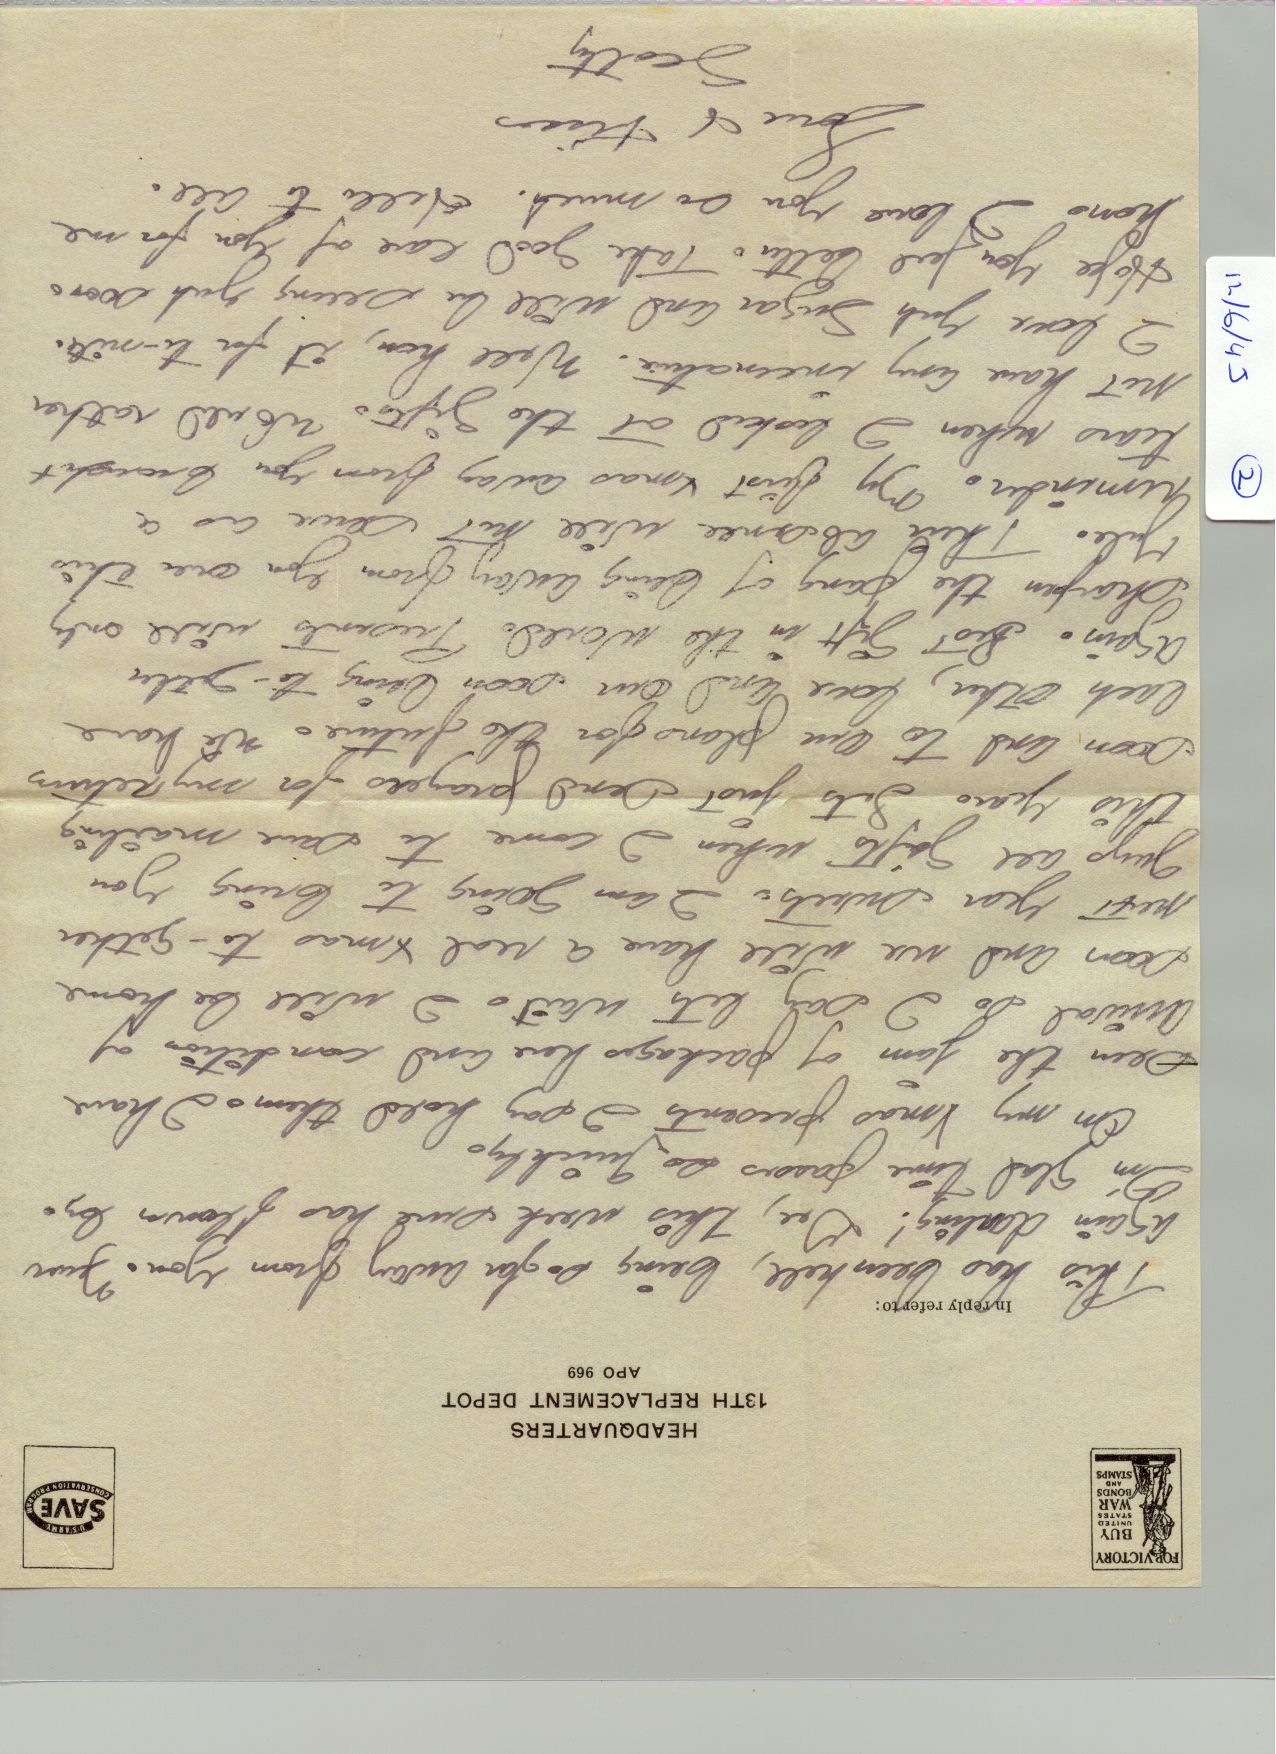 FOR VICTORY
BUY
UNITED
STATES
WAR
BONDS
AND
STAMPS
U.S. ARMY
SAVE
CONSERVATION PROGRAM
HEADQUARTERS
13TH REPLACEMENT DEPOT
APO 969
In reply refer to:
This has been hell, being so far away from you. Never
again darling! Gee, this week sure has flown by.
I'm glad time passes so quickly.
On my Xmas presents I say hold them. I have
seen the jam of packages here and condition of
arrival so I say lets wait. I will be home
soon and we will have a real Xmas to-gether
next year sweets. I am going to bring you
guys all gifts when I come to save mailing
this year. Lets just send prayers for my return
soon and to our plans for the future. We have
each other, love and our soon being to-gether
again. Best gift in the world. Presents will only
sharpen the pang of being away from you over this
yule. Their absence will not serve as a
reminder. My first Xmas away from you brought
tears when I looked at the gifts. Would rather
not have any incentive. Well hon, it for to-nite.
I love yuh Sugar and will be seeing yuh soon.
Hope you feel better. Take good care of you for me
hons I love you so much. Hello to all.
Love & Kisses
Scotty
12/6/45
2